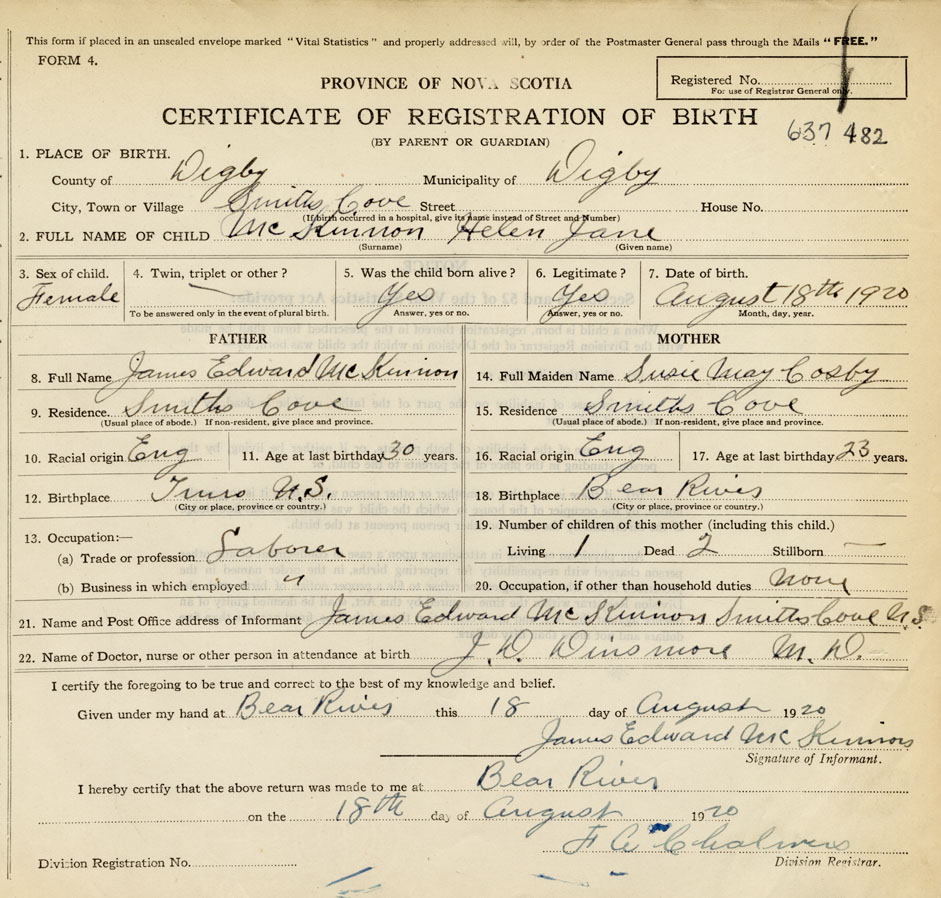 This form if placed in an unsealed envelope marked "Vital Statistics" and properly addressed will, by order of the Postmaster General pass through the Mails "FREE."
FORM 4.
Registered No.
For use of Registrar General only.
PROVINCE OF NOVA SCOTIA
CERTIFICATE OF REGISTRATION OF BIRTH
(BY PARENT OR GUARDIAN)
637 482
1. PLACE OF BIRTH.
County of Digby Municipality of Digby
City, Town or Village Smiths Cove Street House No.
(If birth occurred in a hospital, give its name instead of Street and Number)
2. FULL NAME OF CHILD McKinnon Helen Jane
(Surname) (Given name)
3. Sex of child. 4. Twin, triplet or other? 5. Was the child born alive? 6. Legitimate? 7. Date of birth.
Female — Yes Yes August 18th 1920
To be answered only in the event of plural birth. Answer, yes or no. Answer, yes or no. Month, day, year.
FATHER MOTHER
8. Full Name James Edward McKinnon
14. Full Maiden Name Susie May Cosby
9. Residence. Smiths Cove
15. Residence Smiths Cove
(Usual place of abode.) If non-resident, give place and province.
(Usual place of abode.) If non-resident, give place and province.
10. Racial origin Eng 11. Age at last birthday 30 years.
16. Racial origin Eng 17. Age at last birthday 23 years.
12. Birthplace Truro N.S.
18. Birthplace Bear River
(City or place, province or country.)
(City or place, province or country.)
13. Occupation:—
19. Number of children of this mother (including this child.)
(a) Trade or profession Laborer
Living 1 Dead 2 Stillborn —
(b) Business in which employed "
20. Occupation, if other than household duties None
21. Name and Post Office address of Informant James Edward McKinnon Smiths Cove N.S.
22. Name of Doctor, nurse or other person in attendance at birth J. D. Dinsmore M. D.
I certify the foregoing to be true and correct to the best of my knowledge and belief.
Given under my hand at Bear River this 18 day of August 1920
James Edward McKinnon
Signature of Informant.
I hereby certify that the above return was made to me at Bear River
on the 18th day of August 1920
F A Chalmers
Division Registration No.
Division Registrar.